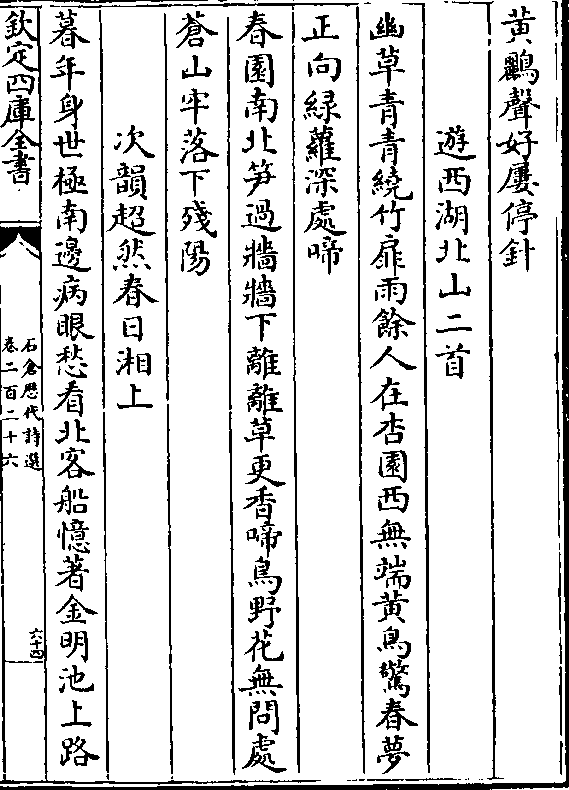 黄鸝聲好屢停針
遊西湖北山二首
幽草青青繞竹扉雨餘人在杏園西無端黄鳥驚春夢
正向綠蘿深處啼
春園南北笋過牆牆下離離草更香啼鳥野花無問處
蒼山牢落下殘陽
次韻超然春日湘上
暮年身世極南邊病眼愁看北客船憶著金明池上路
欽定四庫全書
石倉歴代詩選
卷二百二十六
六十四